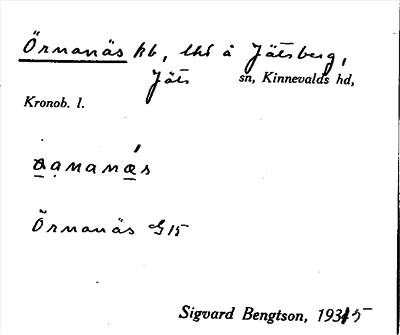 Örnanäs hb, lhd å Jätsberg,
Jäts sn, Kinnevalds hd,
Kronob. l.
Örnanäs G15
Sigvard Bengtson, 1935